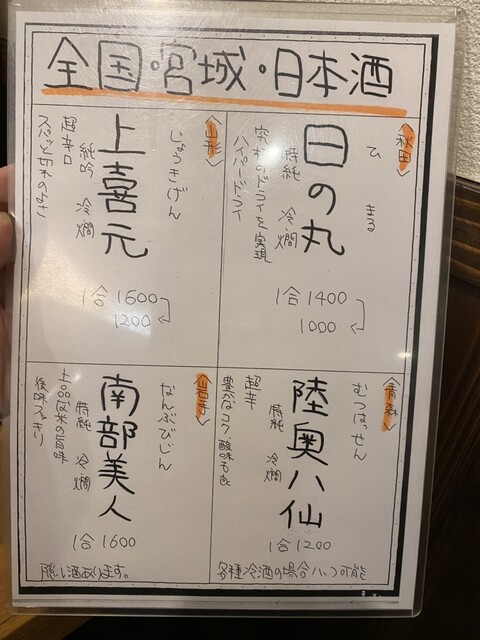 全国・宮城・日本酒
<秋田>
ひ まる
日の丸
特純 冷・燗
究極のドライを実現
ハイパードライ
1合 1400
1000
<山形>
じょうきげん
上喜元
純吟 冷・燗
超辛口
スパッと切れのよさ
1合 1600
1200
<青森>
むつはっせん
陸奥八仙
特純 冷・燗
超辛
豊かなコク、酸味も
1合 1200
<岩手>
なんぶびじん
南部美人
特純 冷・燗
上品な米の旨味
後味スッキリ
1合 1600
隠し酒あります。
各種冷酒の場合 可能